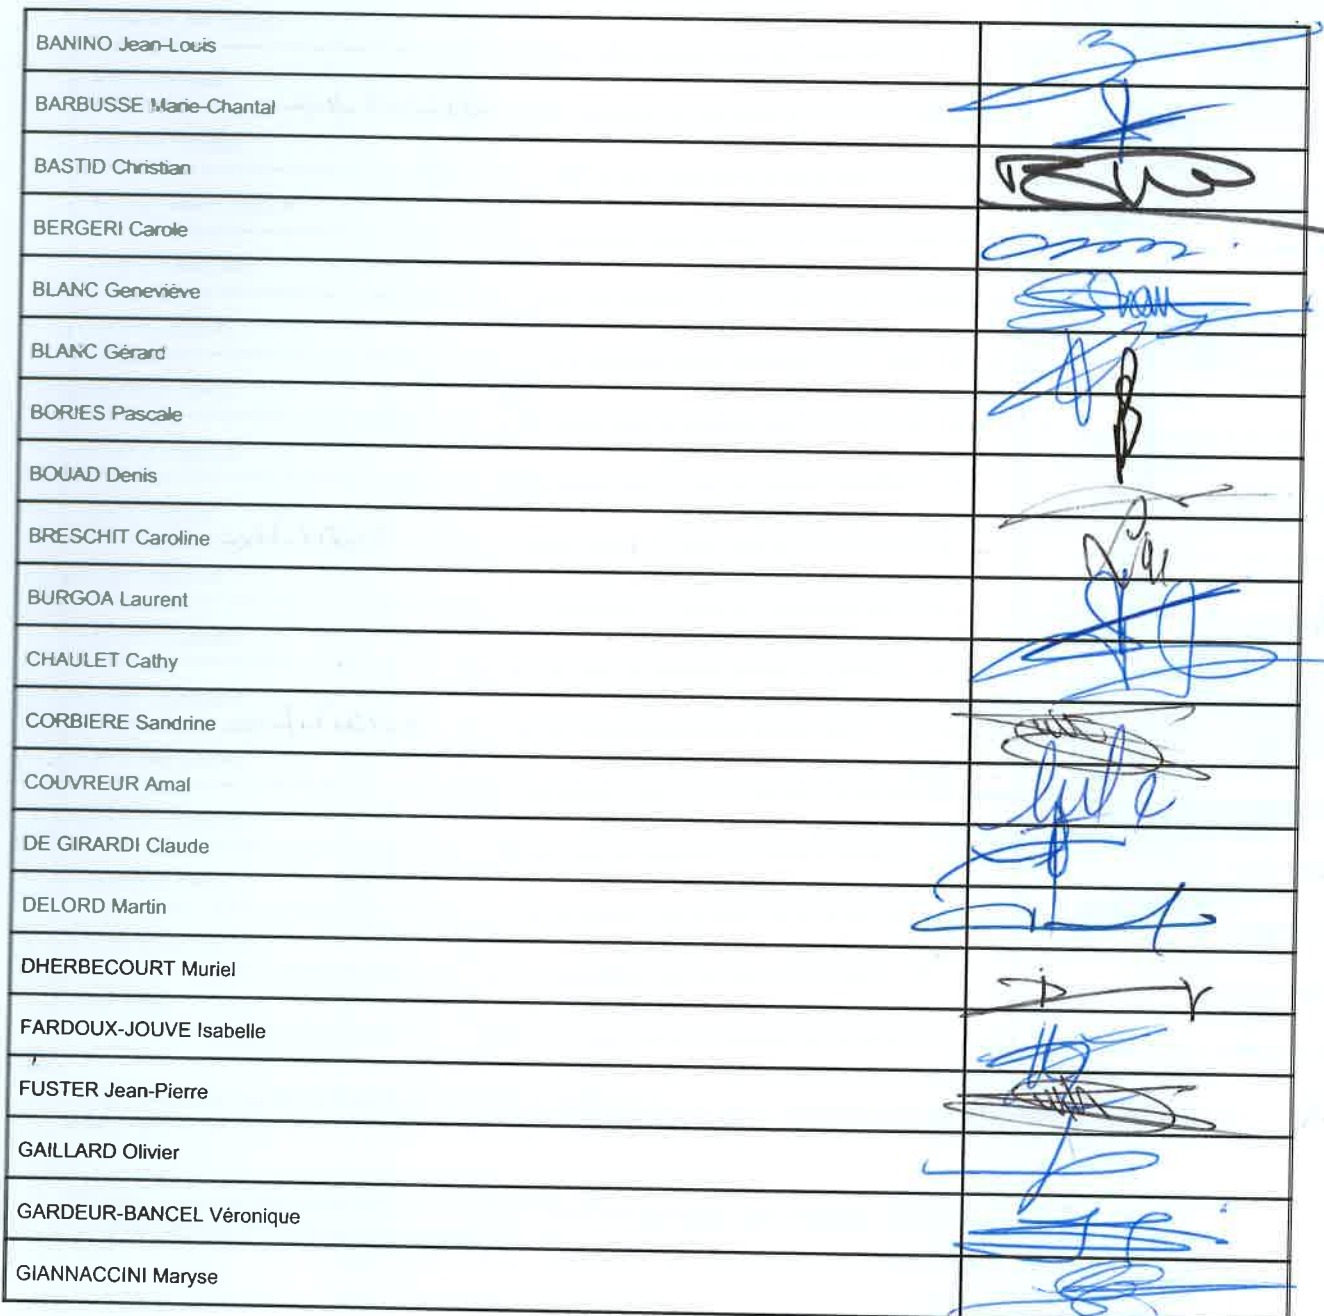 BANINO Jean-Louis
BARBUSSE Marie-Chantal
BASTID Christian
BERGERI Carole
BLANC Geneviève
BLANC Gérard
BORIES Pascale
BOUAD Denis
BRESCHIT Caroline
BURGOA Laurent
CHAULET Cathy
CORBIERE Sandrine
COUVREUR Amal
DE GIRARDI Claude
DELORD Martin
DHERBECOURT Muriel
FARDOUX-JOUVE Isabelle
FUSTER Jean-Pierre
GAILLARD Olivier
GARDEUR-BANCEL Véronique
GIANNACCINI Maryse